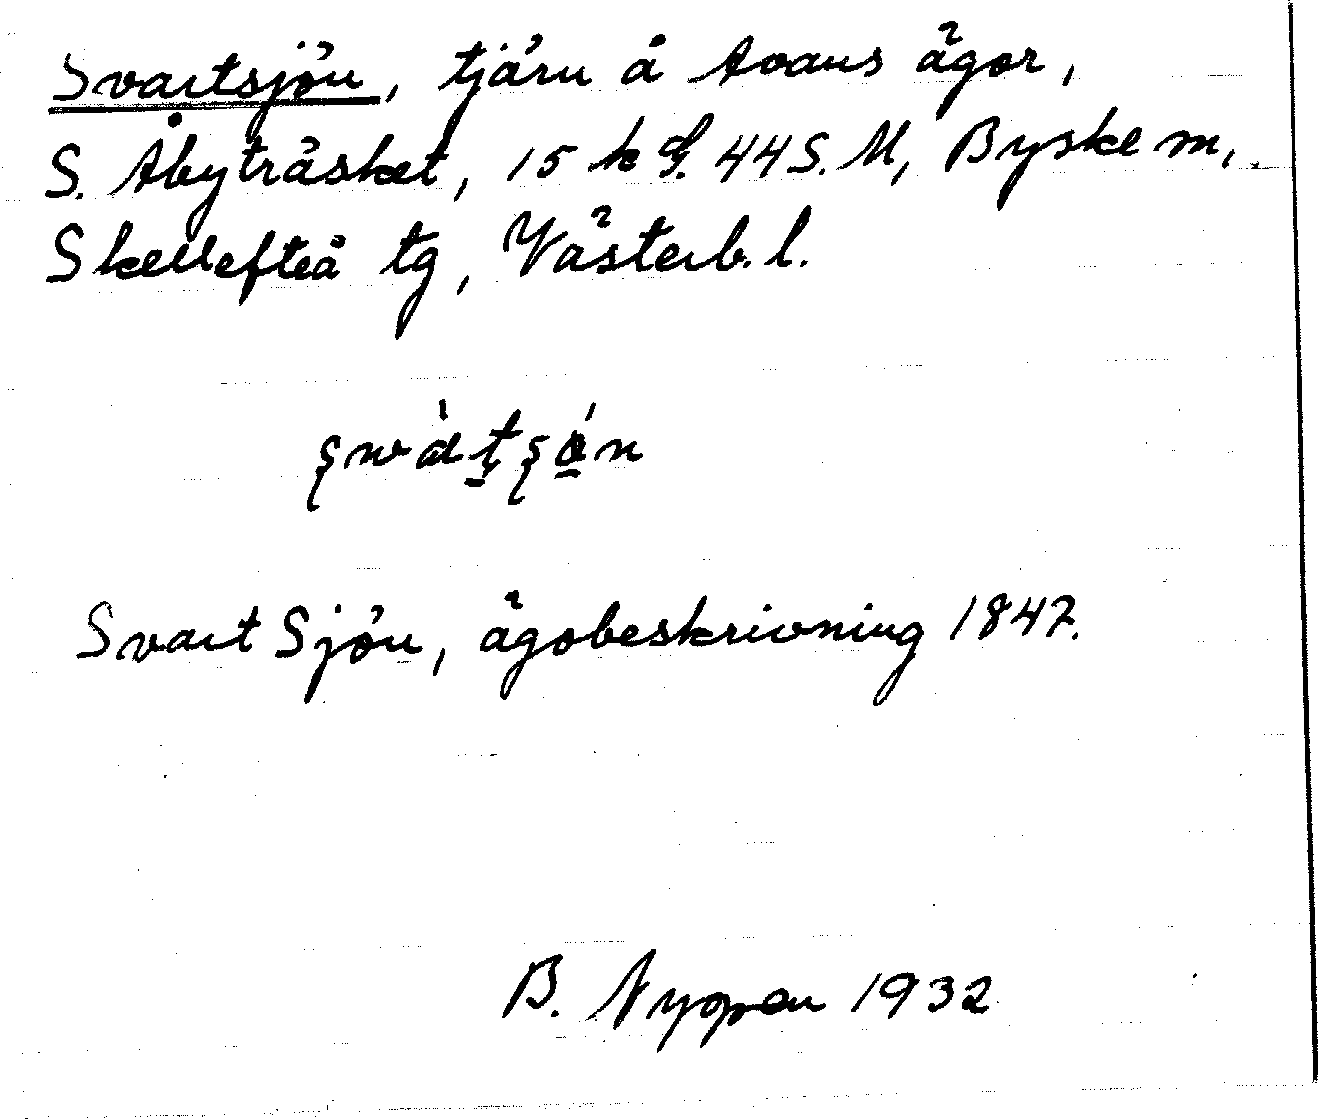 Svartsjön, tjärn å Avans ägor,
S. Åbyträsket, 15 k G. 44 S. M, Byske sn,
Skellefteå tg, Västerb. l.
Svart Sjön, ägobeskrivning 1847.
B. 1932